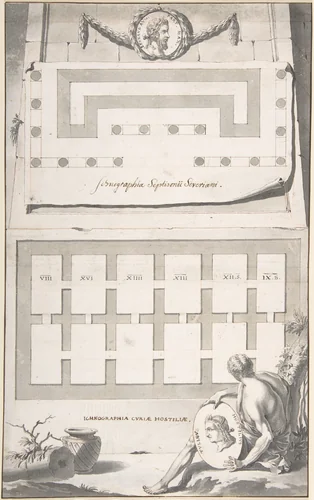 Ichnographia Septizonii Severiani.
VIII XVI XIIII XIII XII.S IX.S
ICHNOGRAPHIA CVRIÆ HOSTILIÆ,